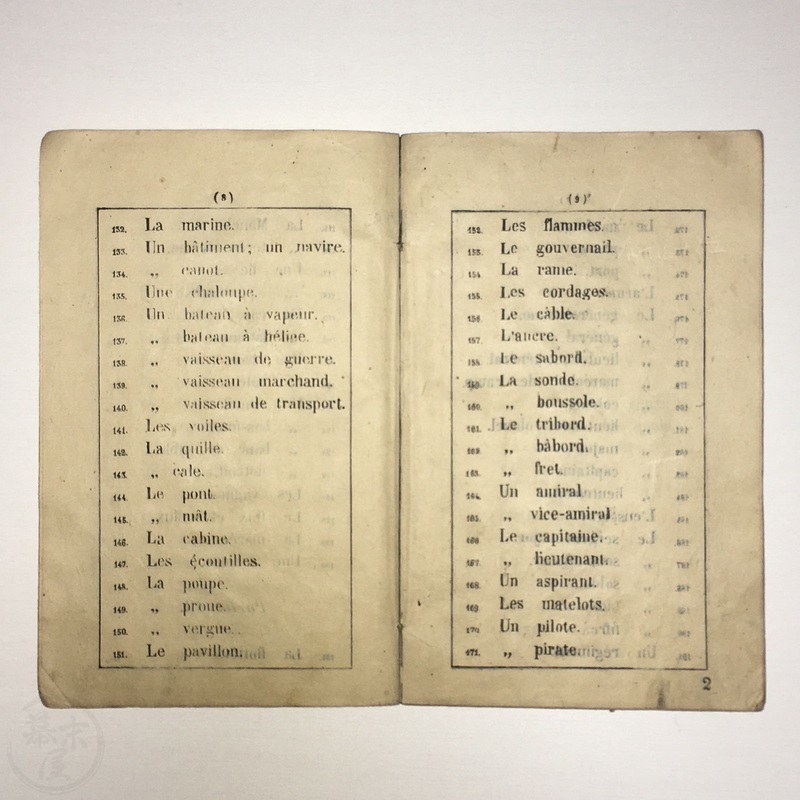 (8)
132. La marine.
133. Un bâtiment; un navire.
134. „ canot.
135. Une chaloupe.
136. Un bateau à vapeur.
137. „ bateau à hélice.
138. „ vaisseau de guerre.
139. „ vaisseau marchand.
140. „ vaisseau de transport.
141. Les voiles.
142. La quille.
143. „ cale.
144. Le pont.
145. „ mât.
146. La cabine.
147. Les écoutilles.
148. La poupe.
149. „ proue.
150. „ vergue.
151. Le pavillon.
(9)
152. Les flammes.
153. Le gouvernail.
154. La rame.
155. Les cordages.
156. Le câble.
157. L'ancre.
158. Le sabord.
159. La sonde.
160. „ boussole.
161. Le tribord.
162. „ bâbord.
163. „ fret.
164. Un amiral
165. „ vice-amiral
166. Le capitaine.
167. „ lieutenant.
168. Un aspirant.
169. Les matelots.
170. Un pilote.
171. „ pirate.
2